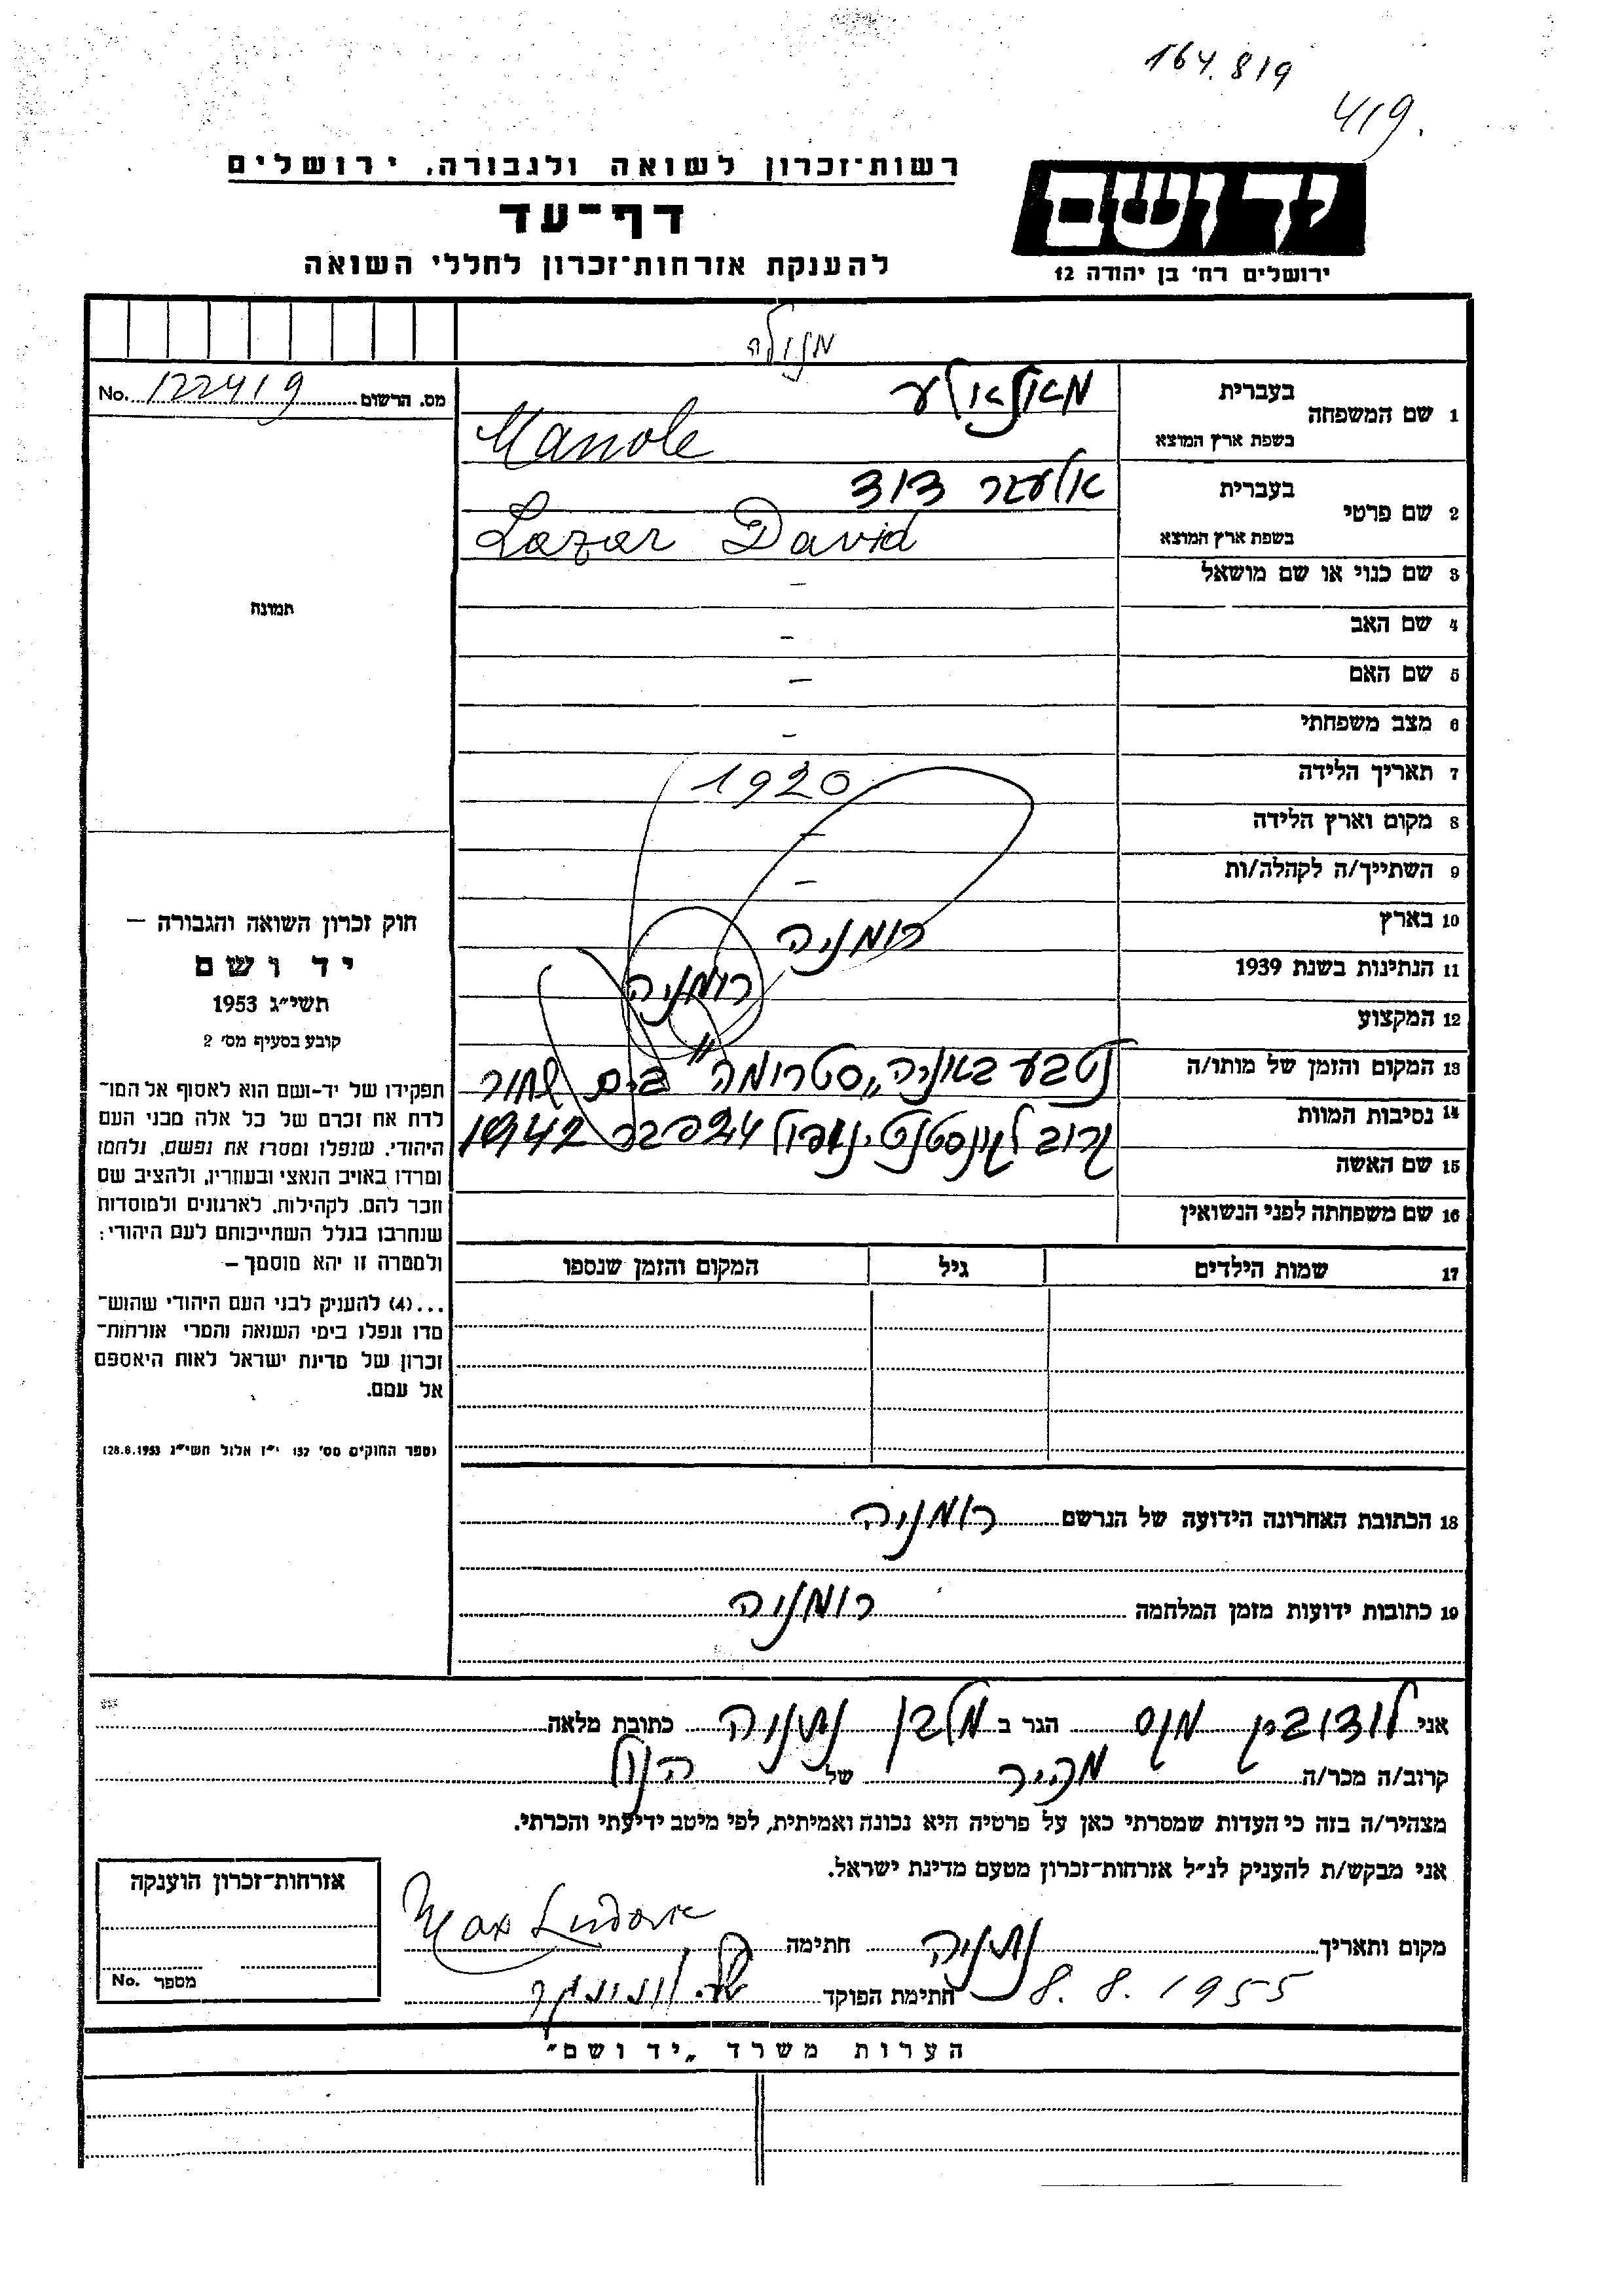 164.819
419.
רשות־זכרון לשואה ולגבורה, ירושלים
דף־עד
להענקת אזרחות־זכרון לחללי השואה
יד ושם
ירושלים רח' בן יהודה 12
מנולה
No. 122419 מס. הרשום
1 שם המשפחה
בעברית מאנאלע
בשפת ארץ המוצא Manole
2 שם פרטי
בעברית אלעזר דוד
בשפת ארץ המוצא Lazar David
3 שם כנוי או שם מושאל –
4 שם האב –
5 שם האם –
6 מצב משפחתי –
7 תאריך הלידה 1920
8 מקום וארץ הלידה –
9 השתייך/ה לקהלה/ות –
10 בארץ רומניה
11 הנתינות בשנת 1939 רומניה
12 המקצוע
13 המקום והזמן של מותו/ה נטבע באניה „סטרומה" בים שחור
14 נסיבות המוות קרוב לקונסטנטינופול 24 פבר 1942
15 שם האשה
16 שם משפחתה לפני הנשואין
17 שמות הילדים גיל המקום והזמן שנספו
תמונה
חוק זכרון השואה והגבורה –
יד ושם
תשי״ג 1953
קובע בסעיף מס' 2
תפקידו של יד-ושם הוא לאסוף אל המו־
לדת את זכרם של כל אלה מבני העם
היהודי, שנפלו ומסרו את נפשם, נלחמו
ומרדו באויב הנאצי ובעוזריו, ולהציב שם
וזכר להם, לקהילות, לארגונים ולמוסדות
שנחרבו בגלל השתייכותם לעם היהודי;
ולמטרה זו יהא מוסמך –
...(4) להעניק לבני העם היהודי שהוש־
מדו ונפלו בימי השואה והמרי אזרחות־
זכרון של מדינת ישראל לאות היאספם
אל עמם.
(ספר החוקים מס' 132 י״ז אלול תשי״ג 28.8.1953)
18 הכתובת האחרונה הידועה של הנרשם רומניה
19 כתובות ידועות מזמן המלחמה רומניה
אני לודוביק מקס הגר ב מלבן נתניה כתובת מלאה
קרוב/ה מכר/ה מכיר של הנ"ל
מצהיר/ה בזה כי העדות שמסרתי כאן על פרטיה היא נכונה ואמיתית, לפי מיטב ידיעתי והכרתי.
אני מבקש/ת להעניק לנ״ל אזרחות־זכרון מטעם מדינת ישראל.
מקום ותאריך נתניה חתימה Max Ludovic
8.8.1955 חתימת הפוקד
אזרחות־זכרון הוענקה
מספר No.
הערות משרד „יד ושם"